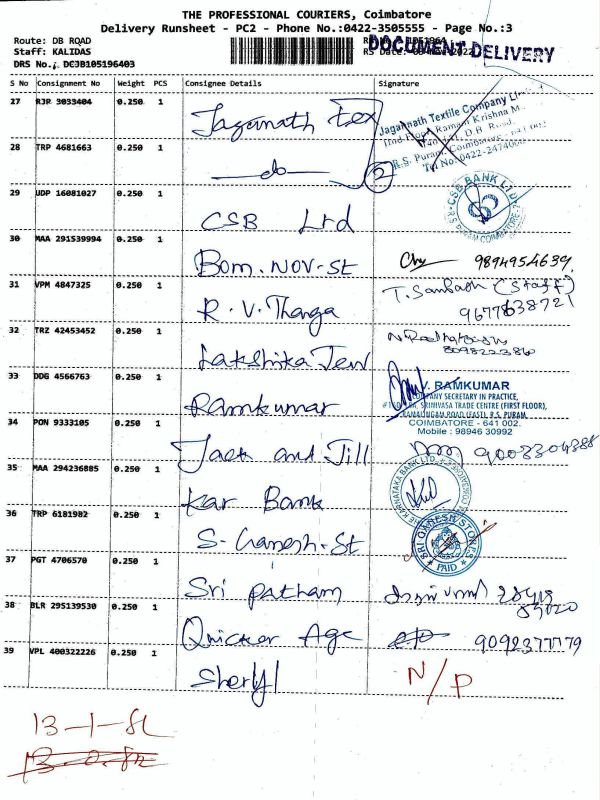 THE PROFESSIONAL COURIERS, Coimbatore
Delivery Runsheet - PC2 - Phone No.:0422-3505555 - Page No.:3
Route: DB ROAD
Staff: KALIDAS
DRS No.: DCJB105196403
RS Date:
DOCUMENT DELIVERY
S No Consignment No Weight PCS Consignee Details Signature
27 RJP 3033404 0.250 1 Jagannath Tex
Jagannath Textile Company
IInd Floor, Raman Krishna
D.B. Road,
R.S. Puram, Coimbatore
Tel No: 0422-2474066
28 TRP 4681663 0.250 1 —do— 2
29 UDP 16081027 0.250 1 CSB Ltd
CSB BANK LTD
R.S. PURAM, COIMBATORE
30 MAA 291539994 0.250 1 Bom. NOV-St 9894954639
31 VPM 4847325 0.250 1 R.V. Thanga T. Sambath (Staff)
9677638721
32 TRZ 42453452 0.250 1 Lakshika Jew
33 DDG 4566763 0.250 1 Ramkumar
V. RAMKUMAR
COMPANY SECRETARY IN PRACTICE,
SRINIVASA TRADE CENTRE (FIRST FLOOR),
RAMALINGAM ROAD (EAST), R.S. PURAM,
COIMBATORE - 641 002.
Mobile : 98946 30992
34 PON 9333105 0.250 1 Jack and Jill 9003304388
35 MAA 294236885 0.250 1 Kar Bank
THE KARNATAKA BANK LTD.
36 TRP 6181982 0.250 1 S-Ganesh-St
SRI GANESH STORES
PAID
37 PGT 4706570 0.250 1 Sri Patham
38 BLR 295139530 0.250 1 Quicker Age 9092377779
39 VPL 400322226 0.250 1 Sheryl N/P
13-1-82